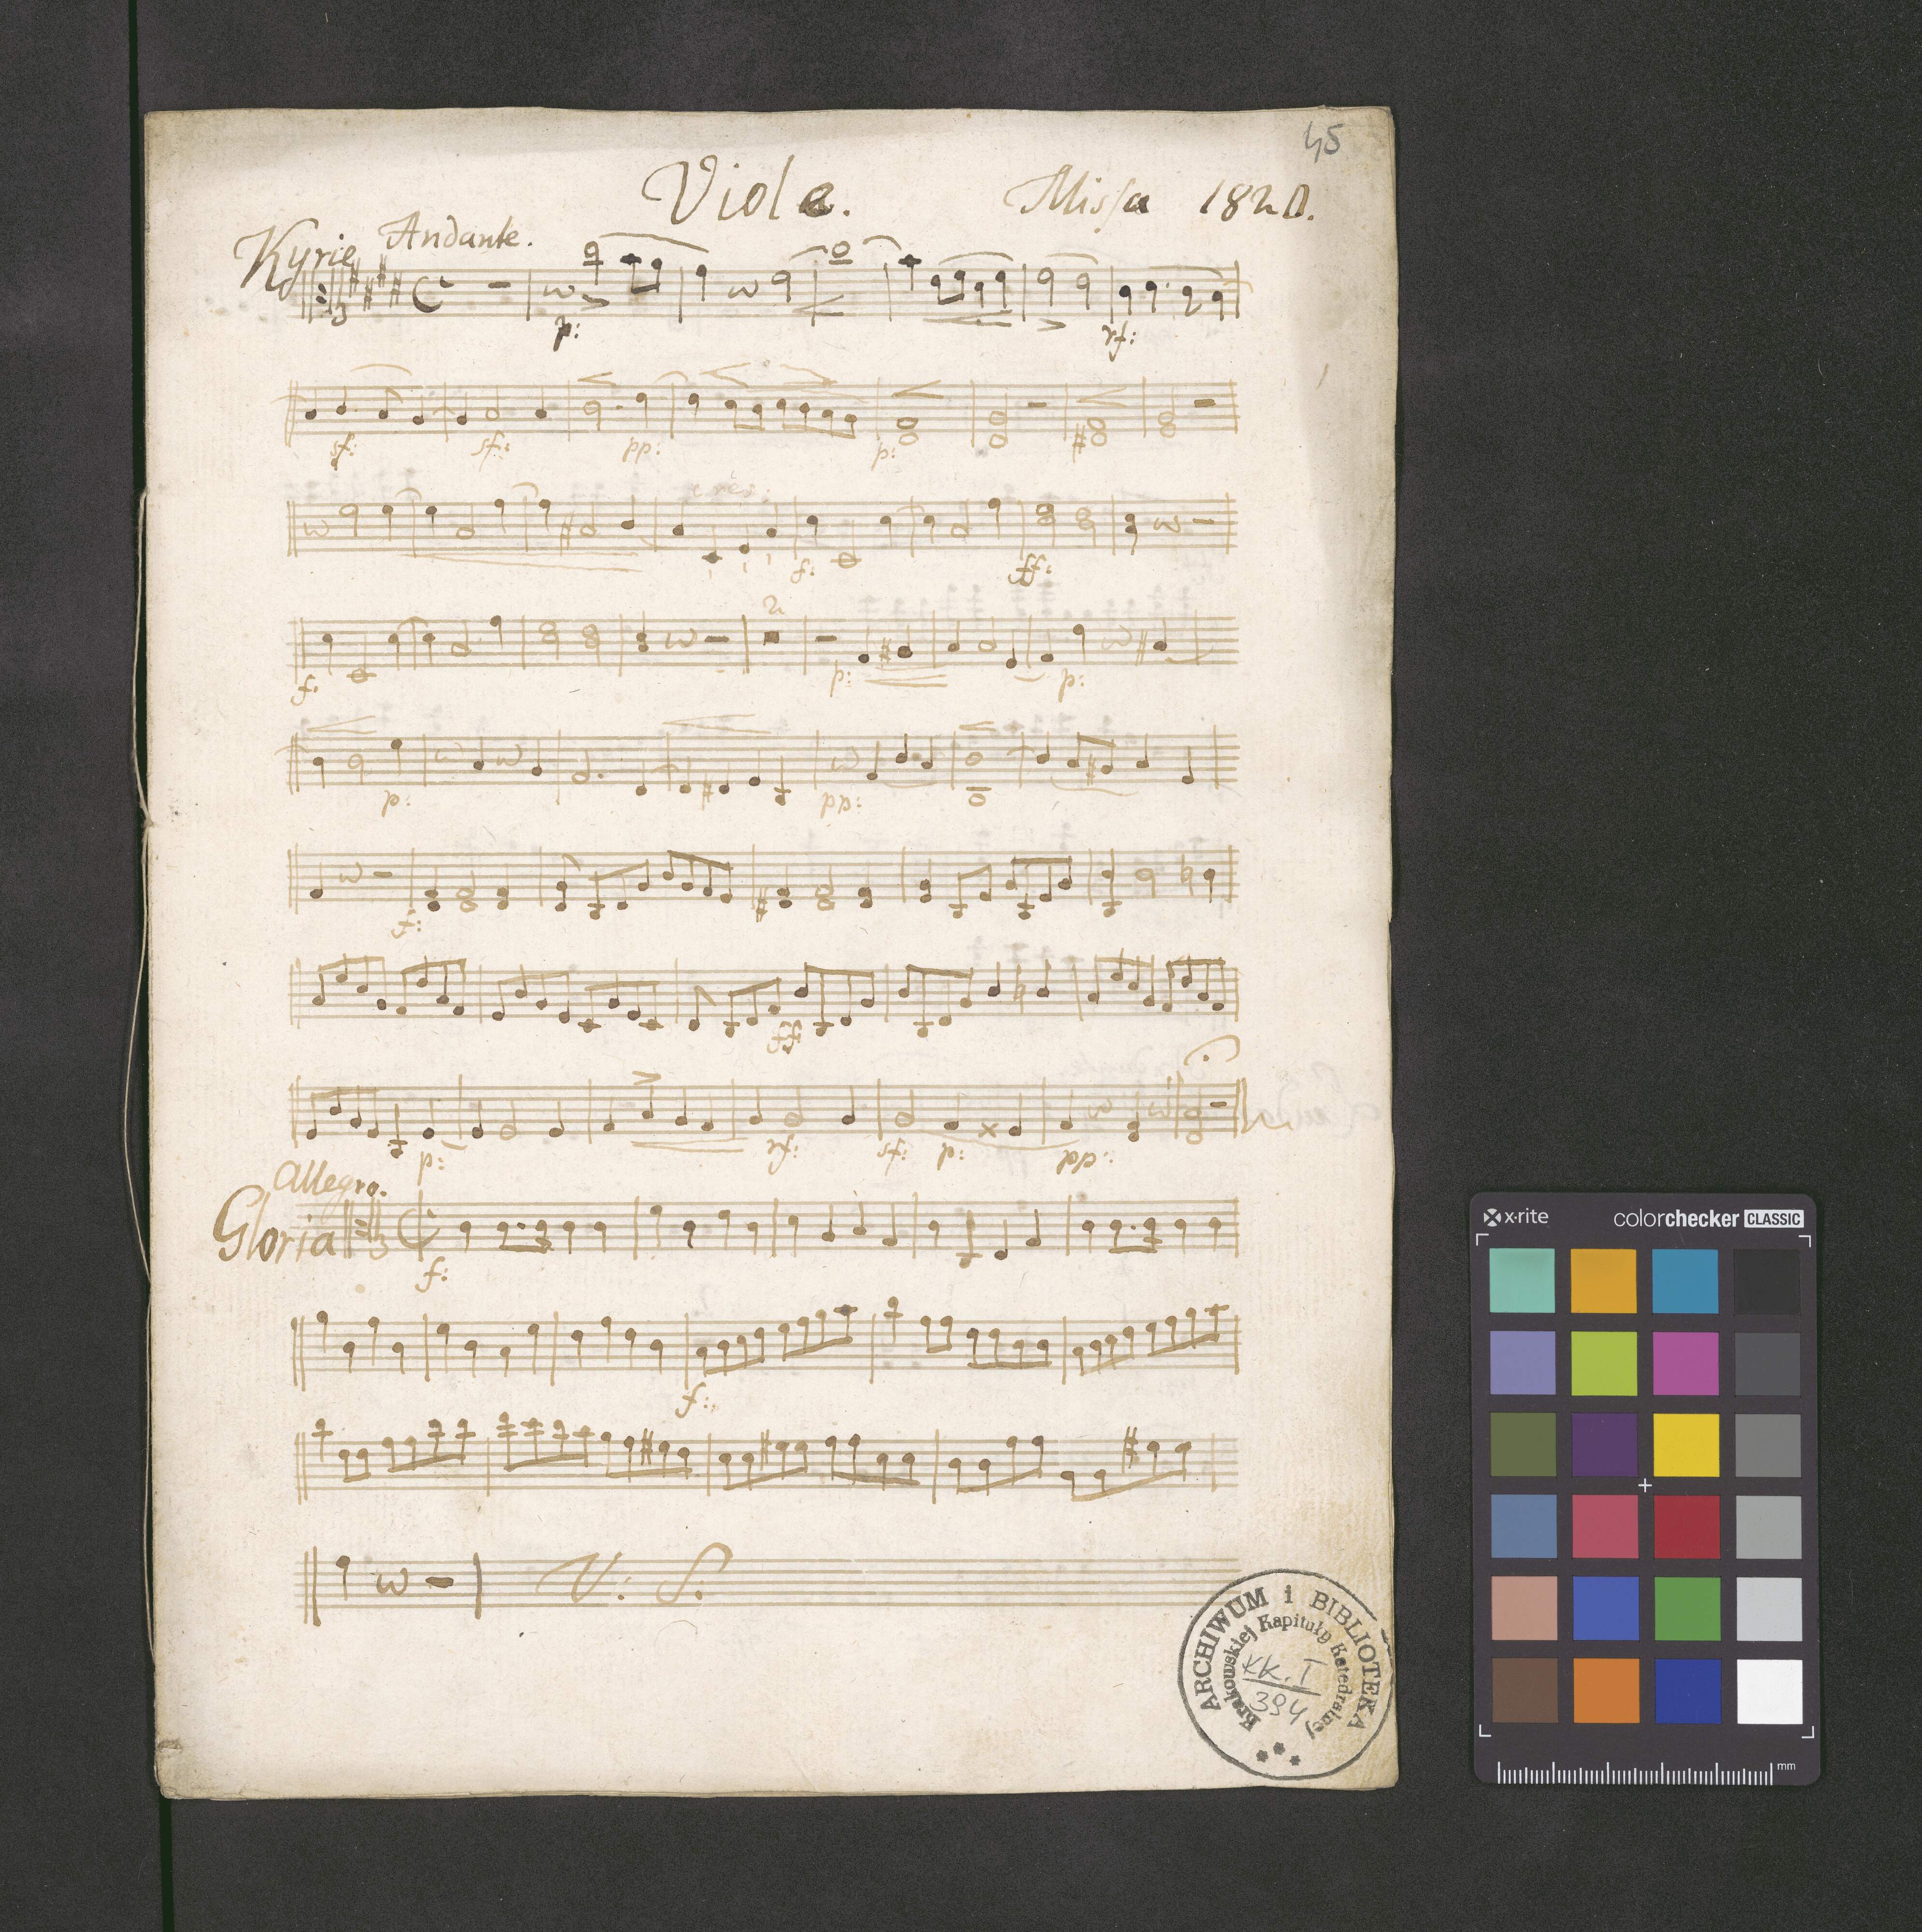 45
Viole. Missa 1820.
Kyrie Andante.
p: rf:
sf: sf: pp: p:
cres:
f: ff:
2
f: p: p:
p: pp:
f:
ff
p: rf: sf: p: pp:
Allegro.
Gloria
f:
f:
V: S:
ARCHIWUM i BIBLIOTEKA
Krakowskiej Kapituły Katedralnej
KK. I
394
x-rite colorchecker CLASSIC
mm